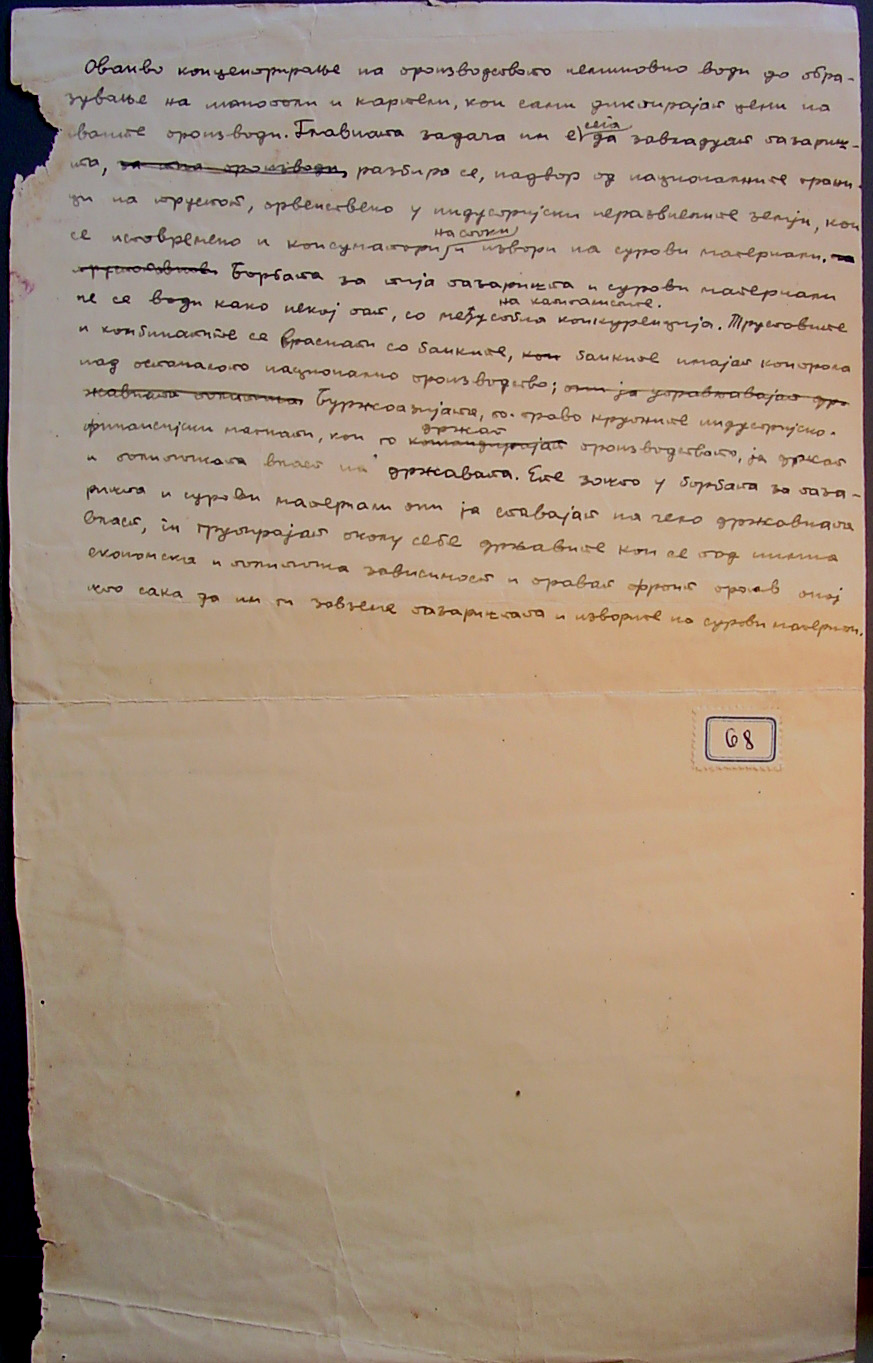 Оваква концентрирање на производството неминовно води до обра-
зување на монополи и картели, кои сами диктирајат цени на
своите производи. Главната задача им е сега да завладујат пазариш-
та, за тиа производи, разбира се, надвор од националните грани-
ци на трустот, првенствено у индустријски неразвиените земји, кои
се истовремено и консуматори на стоки и извори на сурови материали. на
трустовнови Борбата за тија пазаришта и сурови материали
не се води како некој пат, со међусобна конкуренција на капиталистите. Трустовите
и комбинатите се враснати со банките, кои банките имајат контрола
над останалото национално производство; они ја управљавајат др-
жавната политика Буржоазијата, по-право крупните индустријско-
финансијски магнати, кои го командирајат држат производството, ја држат
и политичката власт на државата. Ете зошто у борбата за паза-
ришта и сурови материали они ја ставајат на чело државната
власт, ги групирајат околу себе државите кои се под нимна
економска и политичка зависимост и прават фронт против оној
кто сака да им ги завземе пазариштата и изворите на сурови материали.
68